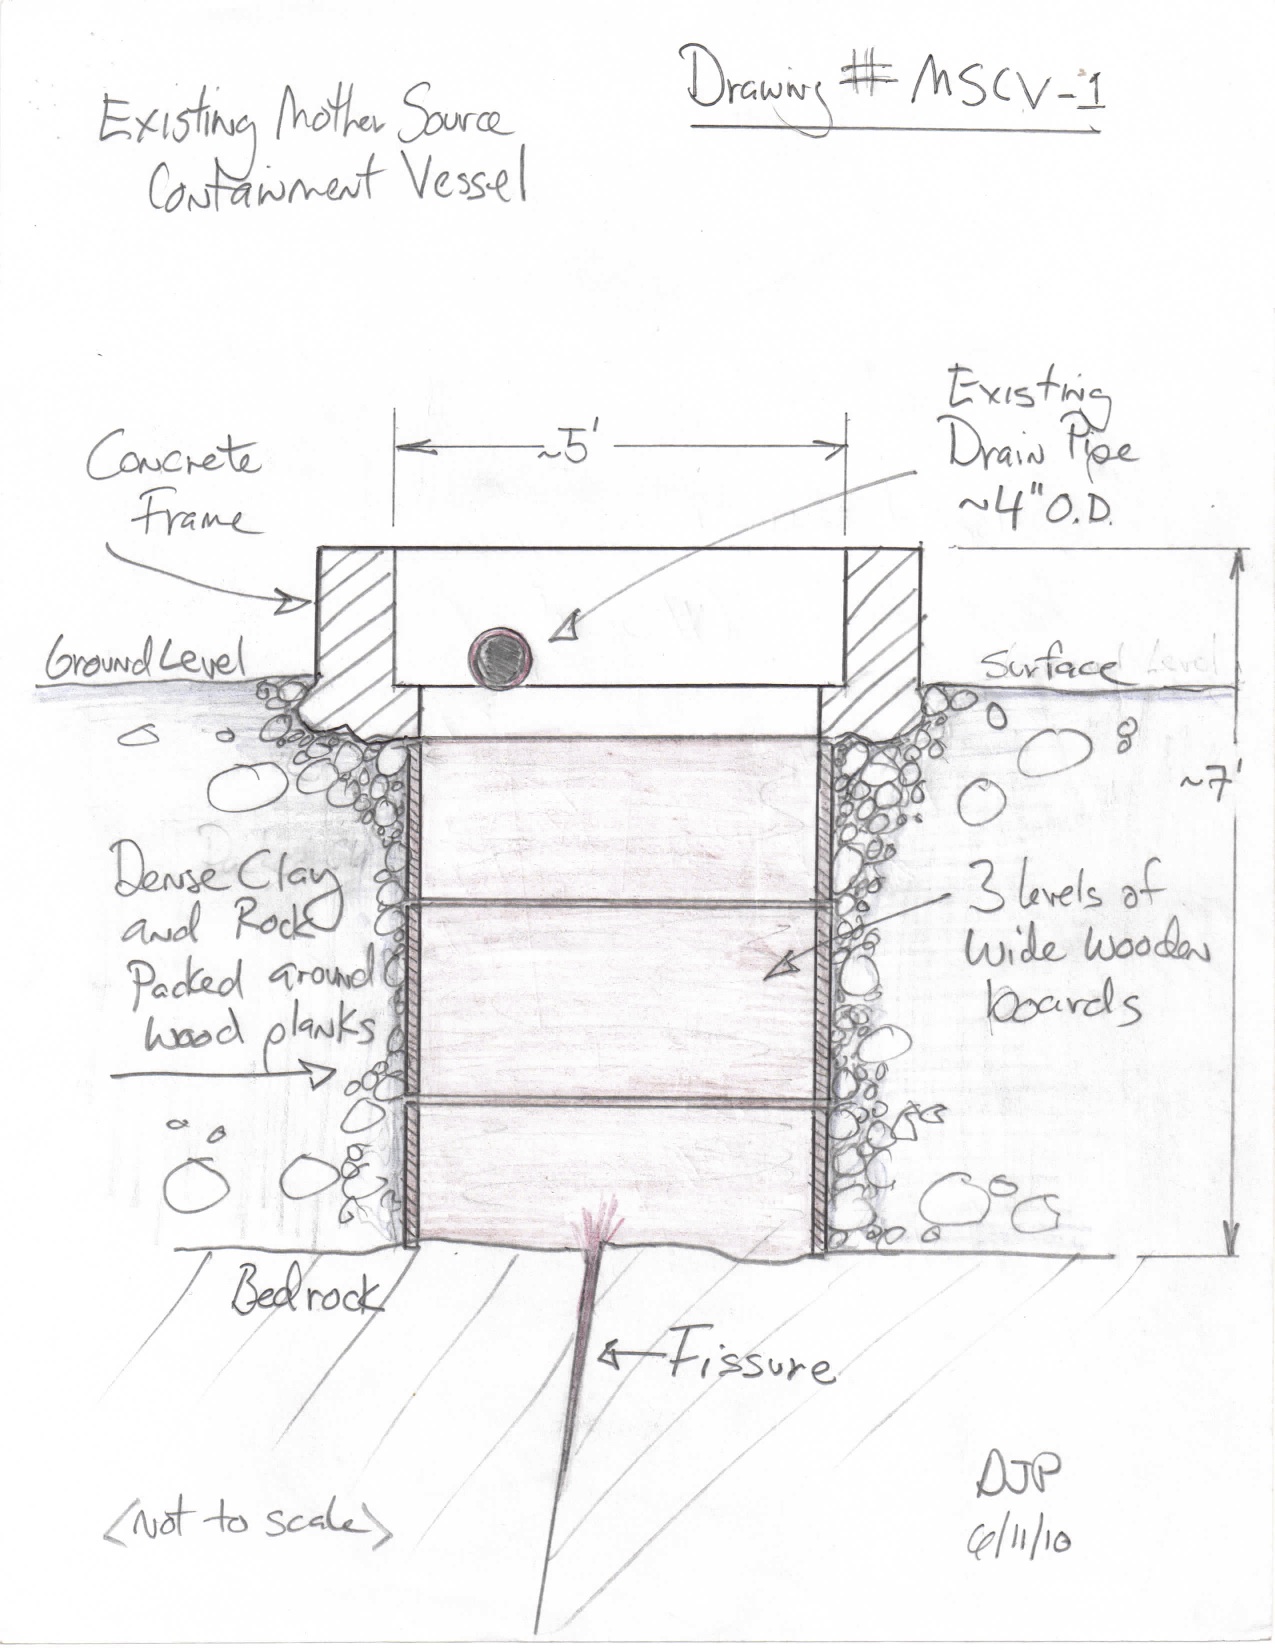 Drawing # MSCV-1
Existing Mother Source
Containment Vessel
~5'
Existing
Drain Pipe
~4" O.D.
Concrete
Frame
Ground Level
Surface Level
~7'
Dense Clay
and Rock
Packed around
wood planks
3 levels of
wide wooden
boards
Bedrock
Fissure
<Not to scale>
DJP
6/11/10